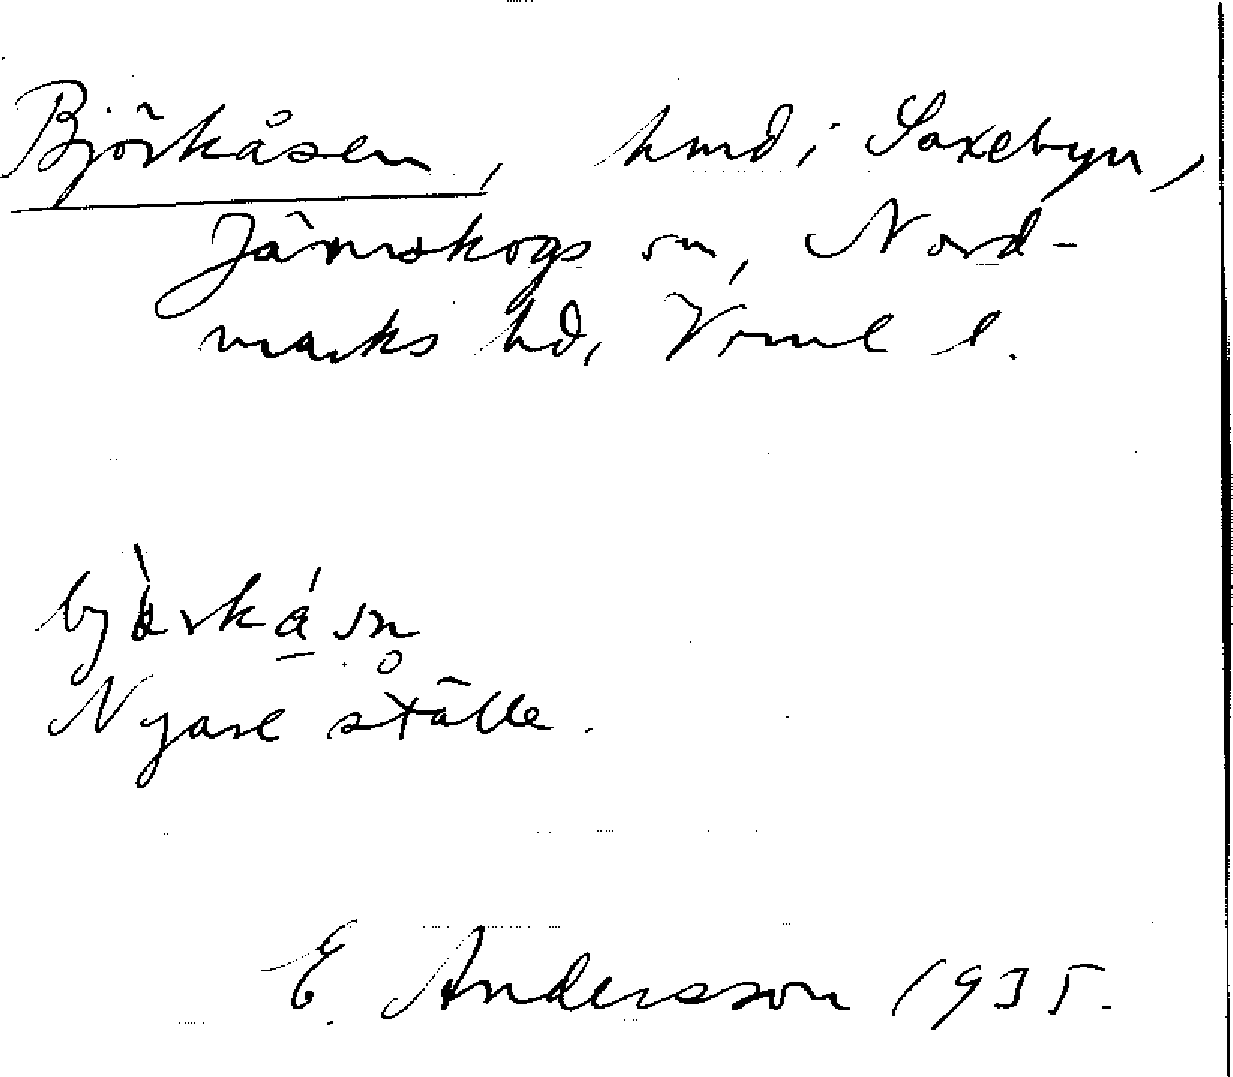 Björkåsen, hmd i Saxebyn,
Järnskogs sn, Nord-
marks hd, Vrml l.
Nyare ställe.
E. Andersson 1935.